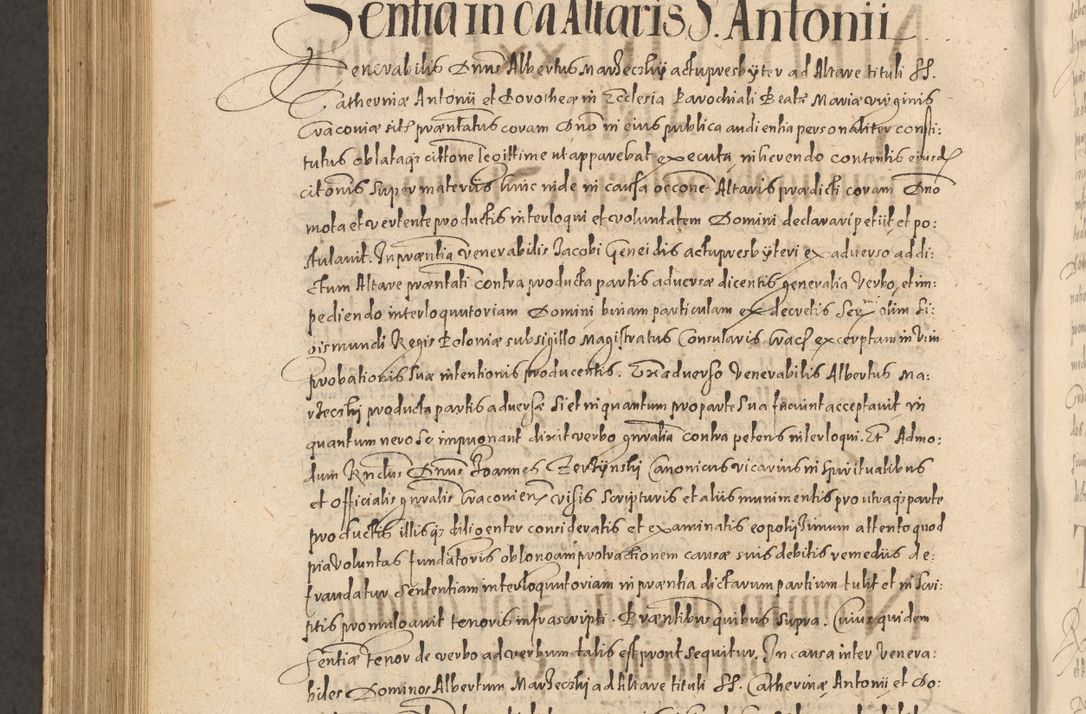 Sentia in ca Altaris S. Antonii
Venerabilis Dnus Albertus Marzeczkij actupresbÿter ad Altare tituli SS.
Catherinæ Antonii et Dorotheæ in Ecclesia Parochiali Beatæ Mariæ virginis
Cracoviæ sitæ præntatus coram Dno in eius publica audientia personaliter consti:
tutus oblataqȝ cittone legittime ut apparebat executa, inherendo contentis eiusdē
citonis super materiis hinc inde in causa occone Altaris prædicti coram Dno
mota et vertente productis interloqui et voluntatem Domini declarari petiit et po:
stulavit. In præntia venerabilis Jacobi Geneidis actupresbÿteri ex adverso ad di:
ctum Altare præntati contra producta partis adversæ dicentis generalia verbo, et im:
pediendo interloquutoriam Domini binam particulam ex decretis Ser olim Si:
gismundi Regis Poloniæ sub sigillo Magistratus Consularis Crac excerptam in vim
probationis suæ intentionis producentis. Ex adverso Venerabilis Albertus Ma:
rzeczkij producta partis adversæ si et in quantum pro parte sua faciunt acceptavit in
quantum vero se impugnant dixit verbo gnralia contra petens interloqui. Et Admo:
dum Rndus Dnus Joannes Zerzÿnskij Canonicus vicarius in spiritualibus
et officialis gnralis Cracovien visis scripturis et aliis munimentis pro utraqȝ parte
productis illisqȝ diligenter consideratis et examinatis eo potissimum attento quod
pia voluntas fundatoris ob longam protractionem causæ suis debitis remediis de:
fraudatur sententiam interloquutoriam in præntia dictarum partium tulit et in scri:
ptis promulgavit tenoris infrascripti. Præntibus quibus supra. Cuius quidem
sentiæ tenor de verbo ad verbum talis est prout sequitur. In causa inter Venera:
biles Dominos Albertum Marzeczkij ad Altare tituli SS. Catherinæ Antonii et Do: